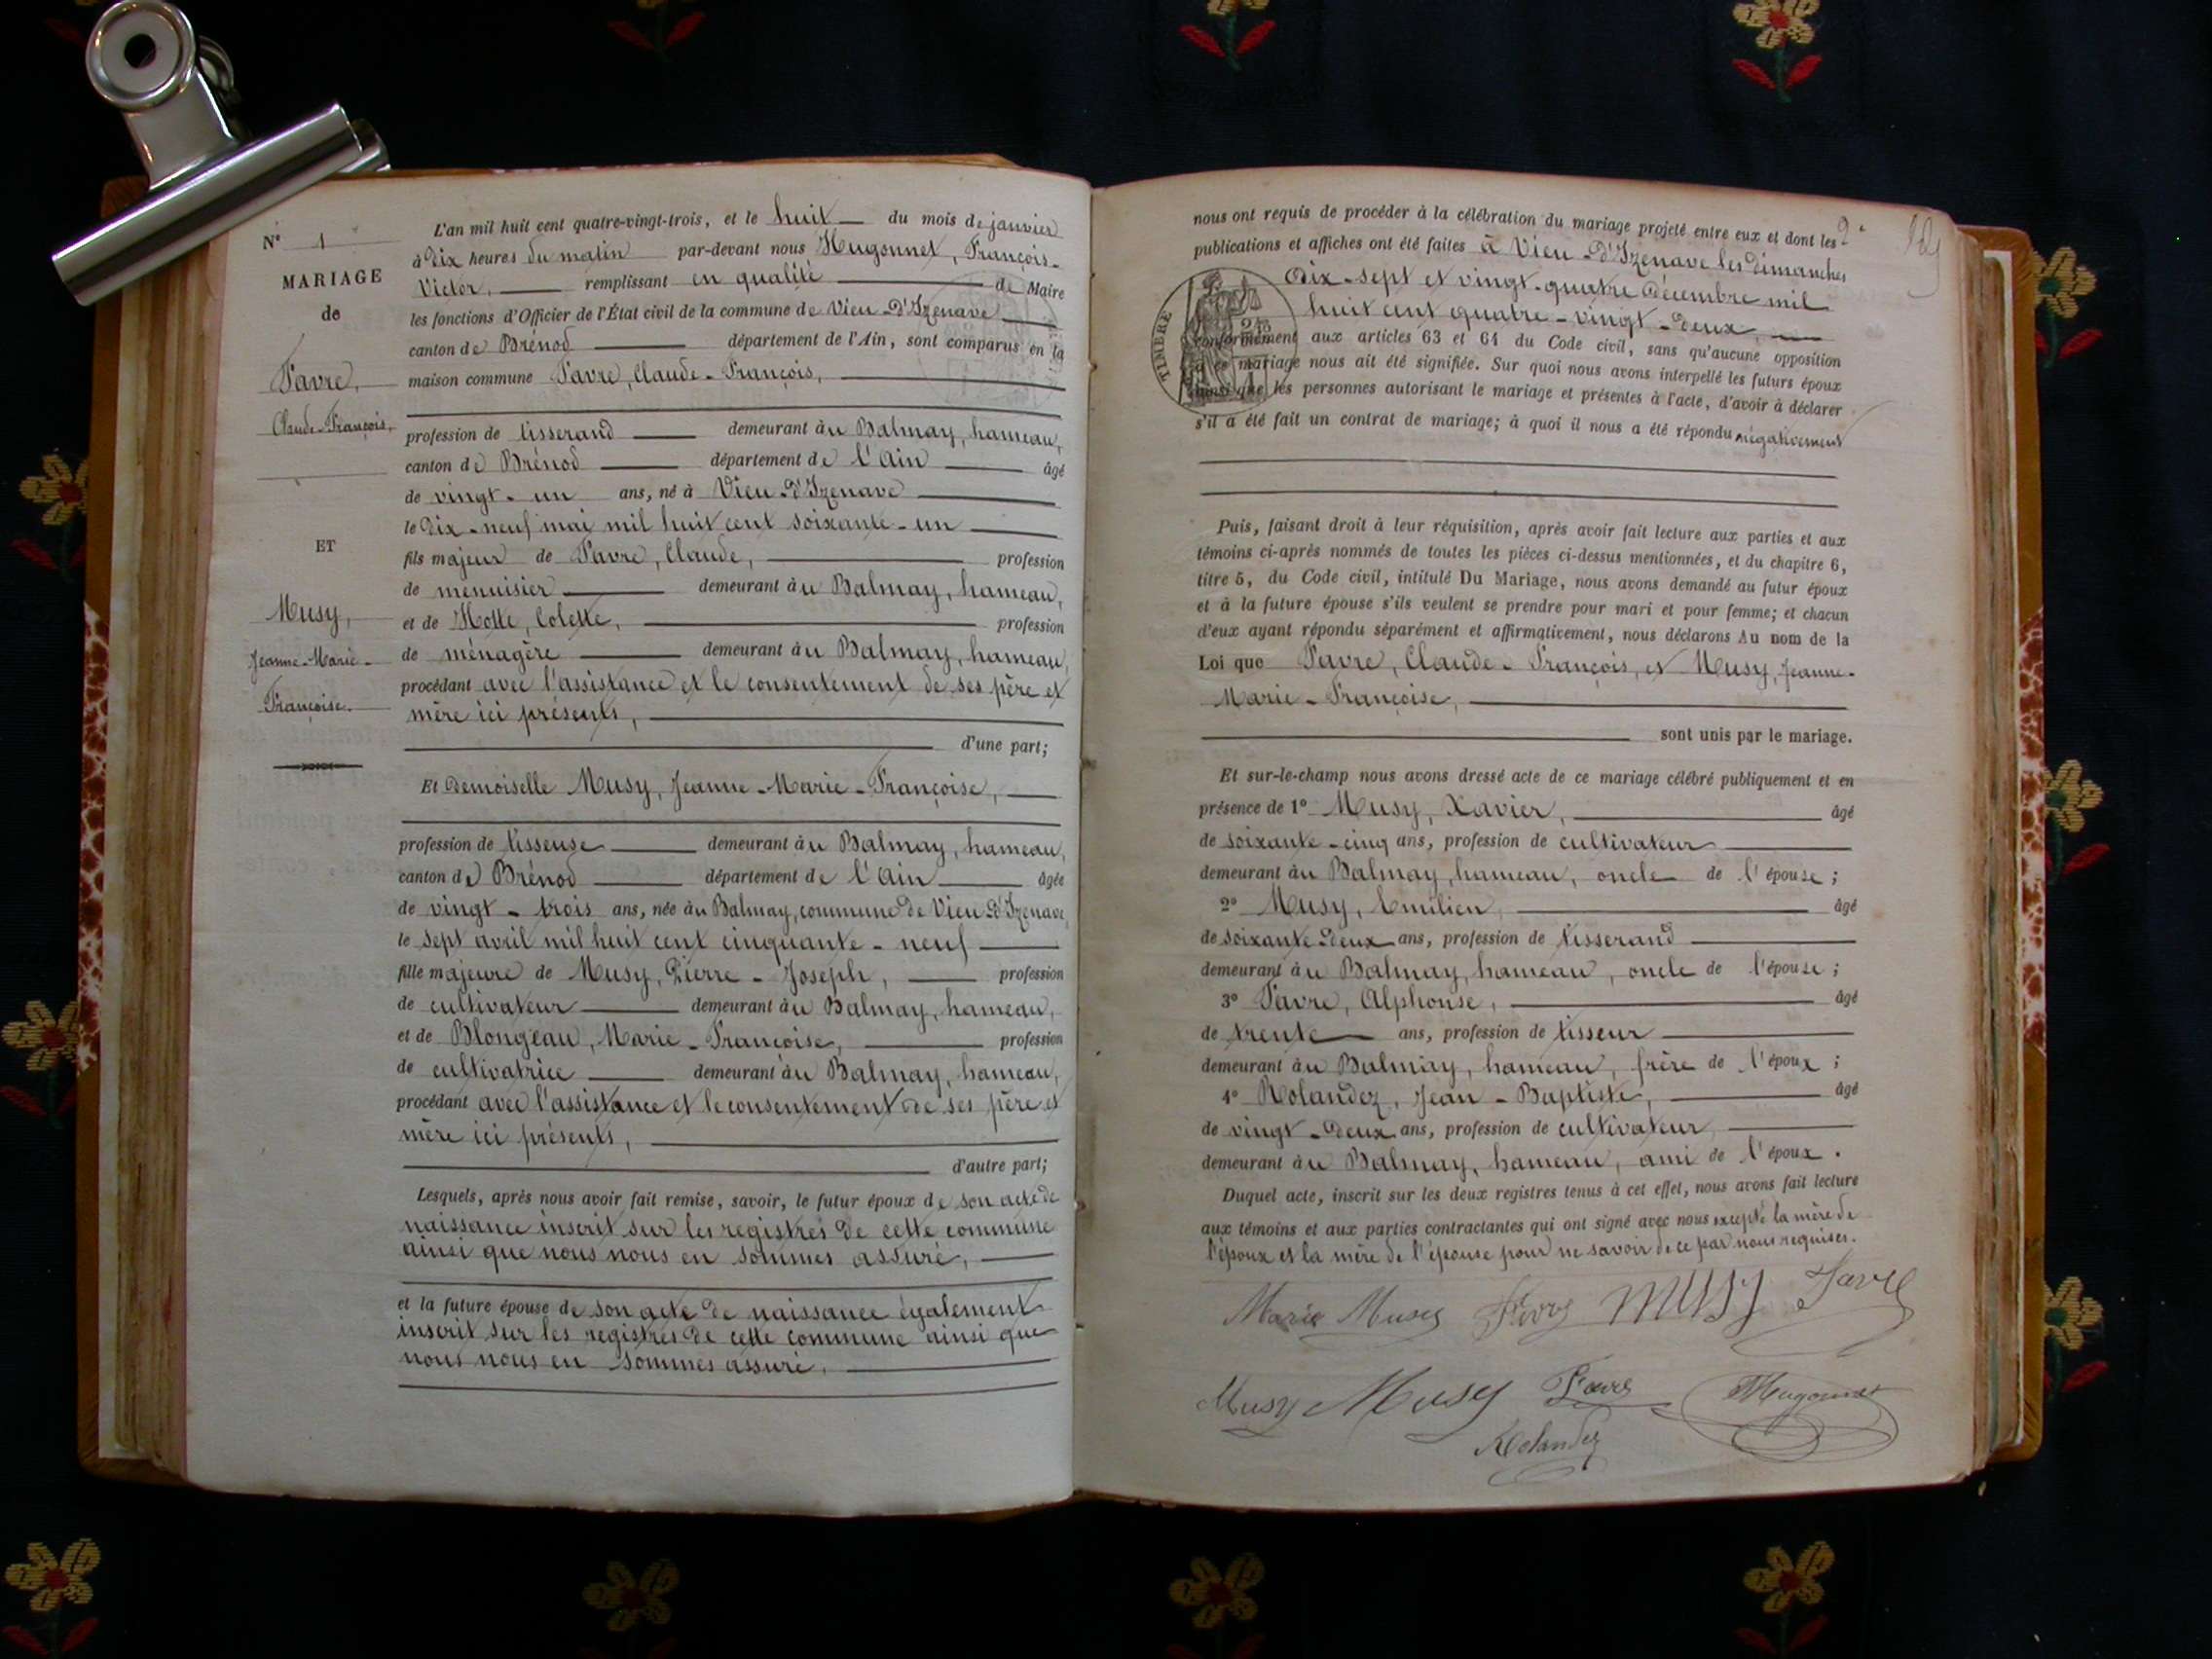 N° 1
MARIAGE
de
Favre,
Claude-François,
ET
Musy,
Jeanne-Marie-
Françoise.
L'an mil huit cent quatre-vingt-trois, et le huit du mois de janvier
à dix heures du matin par-devant nous Hugonnet, François-
Victor, remplissant en qualité de Maire
les fonctions d'Officier de l'État civil de la commune de Vieu-d'Izenave
canton de Brénod département de l'Ain, sont comparus en la
maison commune Favre, Claude-François,
profession de tisserand demeurant au Balmay, hameau,
canton de Brénod département de l'Ain âgé
de vingt-un ans, né à Vieu-d'Izenave
le dix-neuf mai mil huit cent soixante-un
fils majeur de Favre, Claude, profession
de menuisier demeurant au Balmay, hameau,
et de Hotte, Colette, profession
de ménagère demeurant au Balmay, hameau,
procédant avec l'assistance et le consentement de ses père et
mère ici présents,
d'une part;
Et demoiselle Musy, Jeanne-Marie-Françoise,
profession de tisseuse demeurant au Balmay, hameau,
canton de Brénod département de l'Ain âgée
de vingt-trois ans, née au Balmay, commune de Vieu-d'Izenave,
le sept avril mil huit cent cinquante-neuf
fille majeure de Musy, Pierre-Joseph, profession
de cultivateur demeurant au Balmay, hameau,
et de Blongeau, Marie-Françoise, profession
de cultivatrice demeurant au Balmay, hameau,
procédant avec l'assistance et le consentement de ses père et
mère ici présents,
d'autre part;
Lesquels, après nous avoir fait remise, savoir, le futur époux de son acte de
naissance inscrit sur les registres de cette commune
ainsi que nous nous en sommes assuré,
et la future épouse de son acte de naissance également
inscrit sur les registres de cette commune ainsi que
nous nous en sommes assuré.
nous ont requis de procéder à la célébration du mariage projeté entre eux et dont les 2
publications et affiches ont été faites à Vieu-d'Izenave les dimanches
dix-sept et vingt-quatre décembre mil
huit cent quatre-vingt-deux,
TIMBRE
conformément aux articles 63 et 64 du Code civil, sans qu'aucune opposition
à ce mariage nous ait été signifiée. Sur quoi nous avons interpellé les futurs époux
ainsi que les personnes autorisant le mariage et présentes à l'acte, d'avoir à déclarer
s'il a été fait un contrat de mariage; à quoi il nous a été répondu négativement
Puis, faisant droit à leur réquisition, après avoir fait lecture aux parties et aux
témoins ci-après nommés de toutes les pièces ci-dessus mentionnées, et du chapitre 6,
titre 5, du Code civil, intitulé Du Mariage, nous avons demandé au futur époux
et à la future épouse s'ils veulent se prendre pour mari et pour femme; et chacun
d'eux ayant répondu séparément et affirmativement, nous déclarons Au nom de la
Loi que Favre, Claude-François, et Musy, Jeanne-
Marie-Françoise,
sont unis par le mariage.
Et sur-le-champ nous avons dressé acte de ce mariage célébré publiquement et en
présence de 1° Musy, Xavier, âgé
de soixante-cinq ans, profession de cultivateur
demeurant au Balmay, hameau, oncle de l'épouse;
2° Musy, Emilien, âgé
de soixante-deux ans, profession de tisserand
demeurant au Balmay, hameau, oncle de l'épouse;
3° Favre, Alphonse, âgé
de trente ans, profession de tisseur
demeurant au Balmay, hameau, frère de l'époux;
4° Rolandez, Jean-Baptiste, âgé
de vingt-deux ans, profession de cultivateur
demeurant au Balmay, hameau, ami de l'époux.
Duquel acte, inscrit sur les deux registres tenus à cet effet, nous avons fait lecture
aux témoins et aux parties contractantes qui ont signé avec nous excepté la mère de
l'époux et la mère de l'épouse pour ne savoir de ce par nous requises.
Marie Musy Favre MUSY Favre
Musy Musy Favre Hugonnet
Rolandez